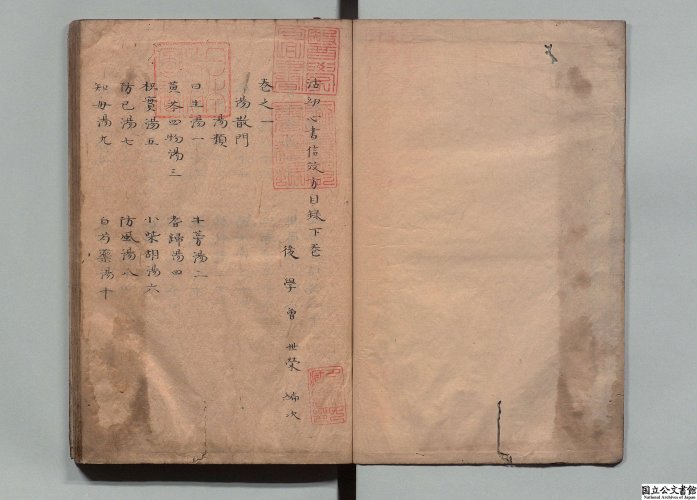 活幼心書信效方目録下卷
後學曾世榮編次
卷之一
湯散門
湯類
日生湯一
牛蒡湯二
黄芩四物湯三
當歸湯四
枳實湯五
小柴胡湯六
防已湯七
防風湯八
知母湯九
白芍藥湯十
国立公文書館
National Archives of Japan